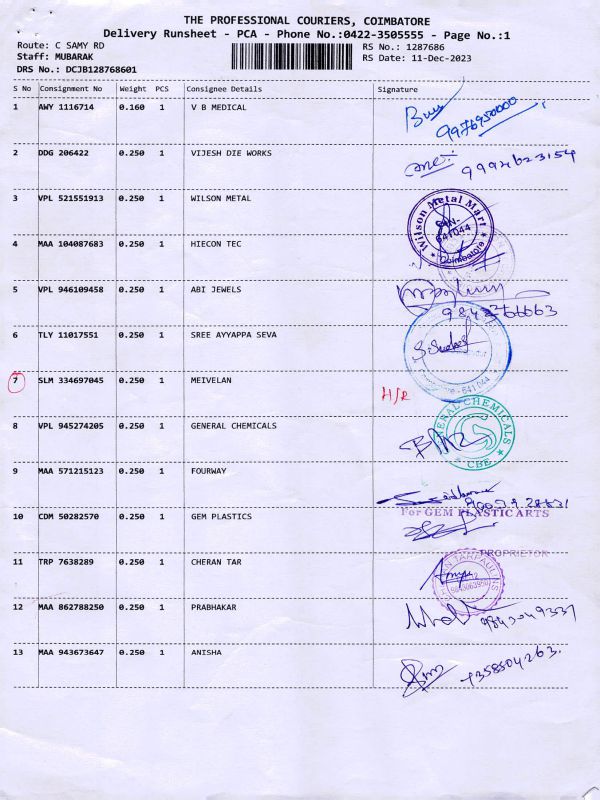 THE PROFESSIONAL COURIERS, COIMBATORE
Delivery Runsheet - PCA - Phone No.:0422-3505555 - Page No.:1
Route: C SAMY RD
RS No.: 1287686
Staff: MUBARAK
RS Date: 11-Dec-2023
DRS No.: DCJB128768601
S No Consignment No Weight PCS Consignee Details Signature
1 AWY 1116714 0.160 1 V B MEDICAL
9976950000
2 DDG 206422 0.250 1 VIJESH DIE WORKS
3 VPL 521551913 0.250 1 WILSON METAL
Wilson Metal Mart
641044
Coimbatore
4 MAA 104087683 0.250 1 HIECON TEC
5 VPL 946109458 0.250 1 ABI JEWELS
6 TLY 11017551 0.250 1 SREE AYYAPPA SEVA
641 044
7 SLM 334697045 0.250 1 MEIVELAN
8 VPL 945274205 0.250 1 GENERAL CHEMICALS
GENERAL CHEMICALS
CBE.
9 MAA 571215123 0.250 1 FOURWAY
10 CDM 50282570 0.250 1 GEM PLASTICS
For GEM PLASTIC ARTS
PROPRIETOR
11 TRP 7638289 0.250 1 CHERAN TAR
12 MAA 862788250 0.250 1 PRABHAKAR
13 MAA 943673647 0.250 1 ANISHA